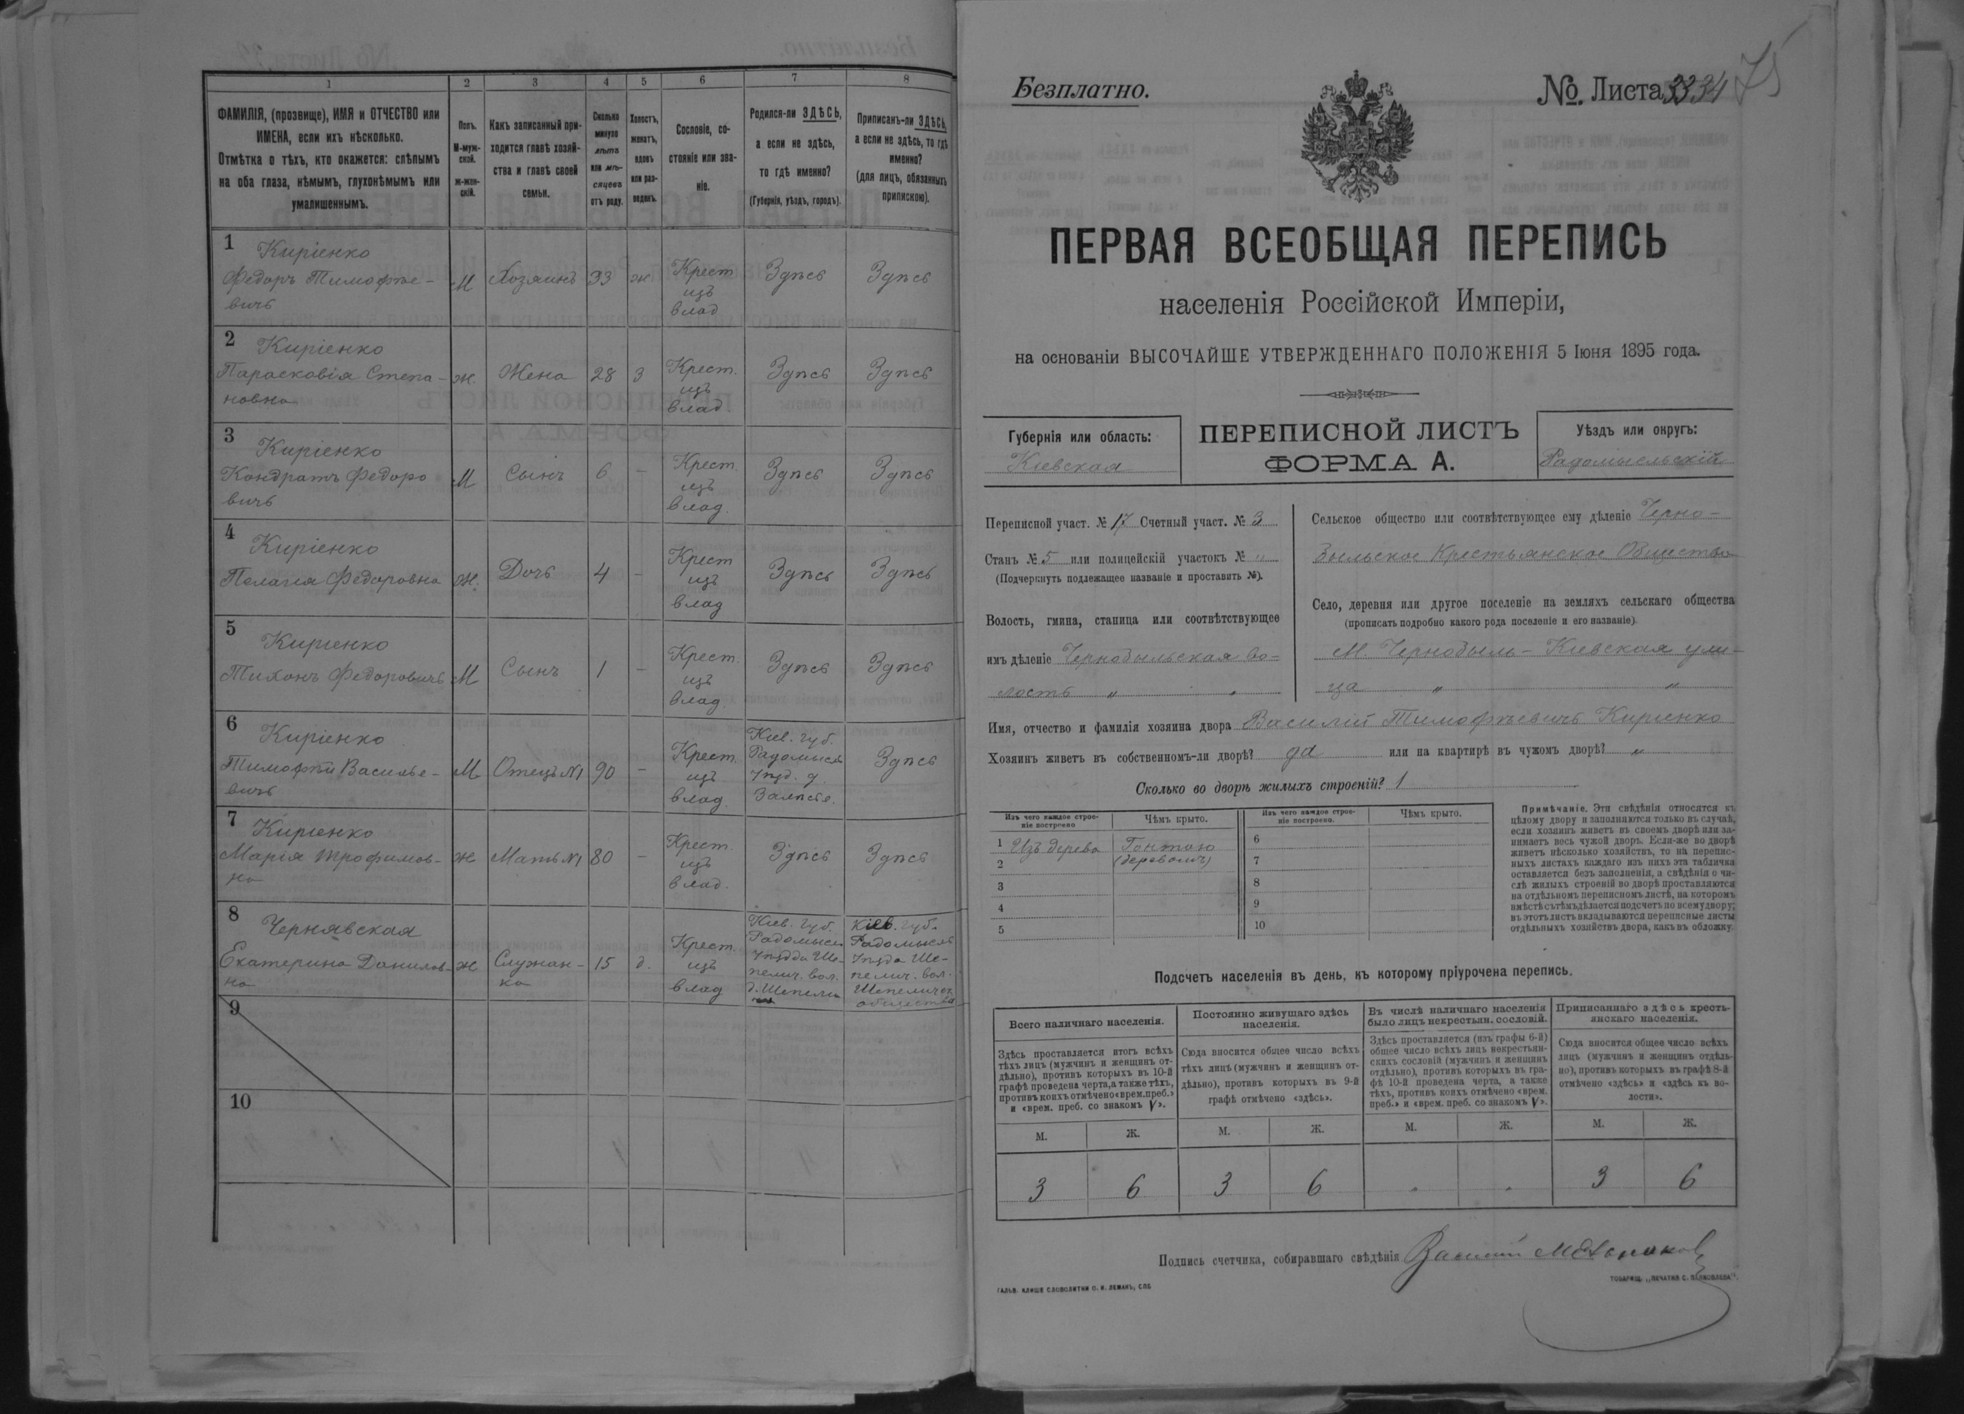 1
2
3
4
5
6
7
8
ФАМИЛІЯ, (прозвище), ИМЯ и ОТЧЕСТВО или
ИМЕНА, если ихъ нѣсколько.
Отмѣтка о тѣхъ, кто окажется: слѣпымъ
на оба глаза, нѣмымъ, глухонѣмымъ или
умалишеннымъ.
Полъ.
М-муж-
ской.
ж-жен-
скій.
Какъ записанный при-
ходится главѣ хозяй-
ства и главѣ своей
семьи.
Сколько
минуло
лѣтъ
или мѣ-
сяцевъ
отъ роду.
Холостъ,
женатъ,
вдовъ
или раз-
веденъ.
Сословіе, со-
стояніе или зва-
ніе.
Родился-ли ЗДѢСЬ,
а если не здѣсь,
то гдѣ именно?
(Губернія, уѣздъ, городъ).
Приписанъ-ли ЗДѢСЬ,
а если не здѣсь, то гдѣ
именно?
(для лицъ, обязанныхъ
припискою).
1 Киріенко
Федоръ Тимофѣе-
вичъ
М
Хозяинъ
33
ж
Крест.
изъ
влад.
Здѣсь
Здѣсь
2 Киріенко
Парасковія Степа-
новна
ж.
Жена
28
З
Крест.
изъ
влад.
Здѣсь
Здѣсь
3 Киріенко
Кондратъ Федоро
вичъ
М
Сынъ
6
-
Крест.
изъ
влад.
Здѣсь
Здѣсь
4 Киріенко
Пелагея Федоровна
ж.
Дочь
4
-
Крест.
изъ
влад
Здѣсь
Здѣсь
5 Киріенко
Тихонъ Федоровичъ
М
Сынъ
1
-
Крест.
изъ
влад.
Здѣсь
Здѣсь
6 Киріенко
Тимофѣй Василье-
вичъ
М
Отецъ №1
90
-
Крест.
изъ
влад.
Кіев. губ.
Радомысл
уѣзд. д.
Залѣсье.
Здѣсь
7 Киріенко
Марія Трофимов-
на
ж
Мать №1
80
-
Крест.
изъ
влад.
Здѣсь
Здѣсь
8 Чернявская
Екатерина Данилов-
на
ж
Служан-
ка
15
д.
Крест.
изъ
влад
Кіев. губ.
Радомысл
уѣзда Ше-
пелич. вол.
д. Шепели
Кіев. губ.
Радомысл
уѣзда Ше-
пелич. вол.
Шепеличск
общества
9
10
Безплатно.
№ Листа 34
75
ПЕРВАЯ ВСЕОБЩАЯ ПЕРЕПИСЬ
населенія Россійской Имперіи,
на основаніи ВЫСОЧАЙШЕ УТВЕРЖДЕННАГО ПОЛОЖЕНІЯ 5 Іюня 1895 года.
Губернія или область:
Кіевская
ПЕРЕПИСНОЙ ЛИСТЪ
ФОРМА А.
Уѣздъ или округъ:
Радомысльскій
Переписной участ. № 17 Счетный участ. № 3
Станъ № 5 или полицейскій участокъ № „
(Подчеркнуть подлежащее названіе и проставить №).
Волость, гмина, станица или соотвѣтствующее
имъ дѣленіе Чернобыльская во-
лость „ „
Сельское общество или соотвѣтствующее ему дѣленіе Черно-
быльское Крестьянское Общество
Село, деревня или другое поселеніе на земляхъ сельскаго общества
(прописать подробно какого рода поселеніе и его названіе).
М. Чернобыль - Кіевская ули-
ца „ „
Имя, отчество и фамилія хозяина двора Василій Тимофѣевичъ Киріенко
Хозяинъ живетъ въ собственномъ-ли дворѣ? да или на квартирѣ въ чужомъ дворѣ? „
Сколько во дворѣ жилыхъ строеній? 1
Изъ чего каждое строе-
ніе построено
Чѣмъ крыто.
Изъ чего каждое строе-
ніе построено.
Чѣмъ крыто.
1 Изъ дерева
Гонтою
(деревомъ)
2
3
4
5
6
7
8
9
10
Примѣчаніе. Эти свѣдѣнія относятся къ
цѣлому двору и заполняются только въ случаѣ,
если хозяинъ живетъ въ своемъ дворѣ или за-
нимаетъ весь чужой дворъ. Если-же во дворѣ
живетъ нѣсколько хозяйствъ, то на перепис-
ныхъ листахъ каждаго изъ нихъ эта табличка
оставляется безъ заполненія, а свѣдѣнія о чи-
слѣ жилыхъ строеній во дворѣ проставляются
на отдѣльномъ переписномъ листѣ, на которомъ
вмѣстѣ съ тѣмъ дѣлается подсчетъ по всему двору;
въ этотъ листъ вкладываются переписные листы
отдѣльныхъ хозяйствъ двора, какъ въ обложку.
Подсчетъ населенія въ день, къ которому пріурочена перепись.
Всего наличнаго населенія.
Постоянно живущаго здѣсь
населенія.
Въ числѣ наличнаго населенія
было лицъ некрестьян. сословій.
Приписаннаго здѣсь кресть-
янскаго населенія.
Здѣсь проставляется итогъ всѣхъ
тѣхъ лицъ (мужчинъ и женщинъ от-
дѣльно), противъ которыхъ въ 10-й
графѣ проведена черта, а также тѣхъ,
противъ коихъ отмѣчено «врем. преб.»
и «врем. преб. со знакомъ V».
Сюда вносится общее число всѣхъ
тѣхъ лицъ (мужчинъ и женщинъ от-
дѣльно), противъ которыхъ въ 9-й
графѣ отмѣчено «здѣсь».
Здѣсь проставляется (изъ графы 6-й)
общее число всѣхъ лицъ некрестьян-
скихъ сословій (мужчинъ и женщинъ
отдѣльно), противъ которыхъ въ гра-
фѣ 10-й проведена черта, а также
тѣхъ, противъ коихъ отмѣчено «врем.
преб.» и «врем. преб. со знакомъ V».
Сюда вносится общее число всѣхъ
лицъ (мужчинъ и женщинъ отдѣль-
но), противъ которыхъ въ графѣ 8-й
отмѣчено «здѣсь» и «здѣсь къ во-
лости».
М.
Ж.
М.
Ж.
М.
Ж.
М.
Ж.
3
6
3
6
3
6
Подпись счетчика, собиравшаго свѣдѣнія Василій
ГАЛЬВ. КЛИШЕ СЛОВОЛИТНИ О. И. ЛЕМАНЪ, СПБ.
ТОВАРИЩ. „ПЕЧАТНЯ С. ЯКОВЛЕВА".